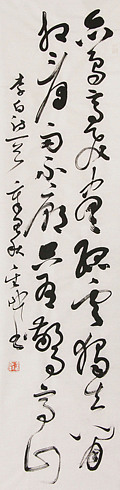 众鸟高飞尽孤云独去闲
相看两不厌只有敬亭山
李白诗一首